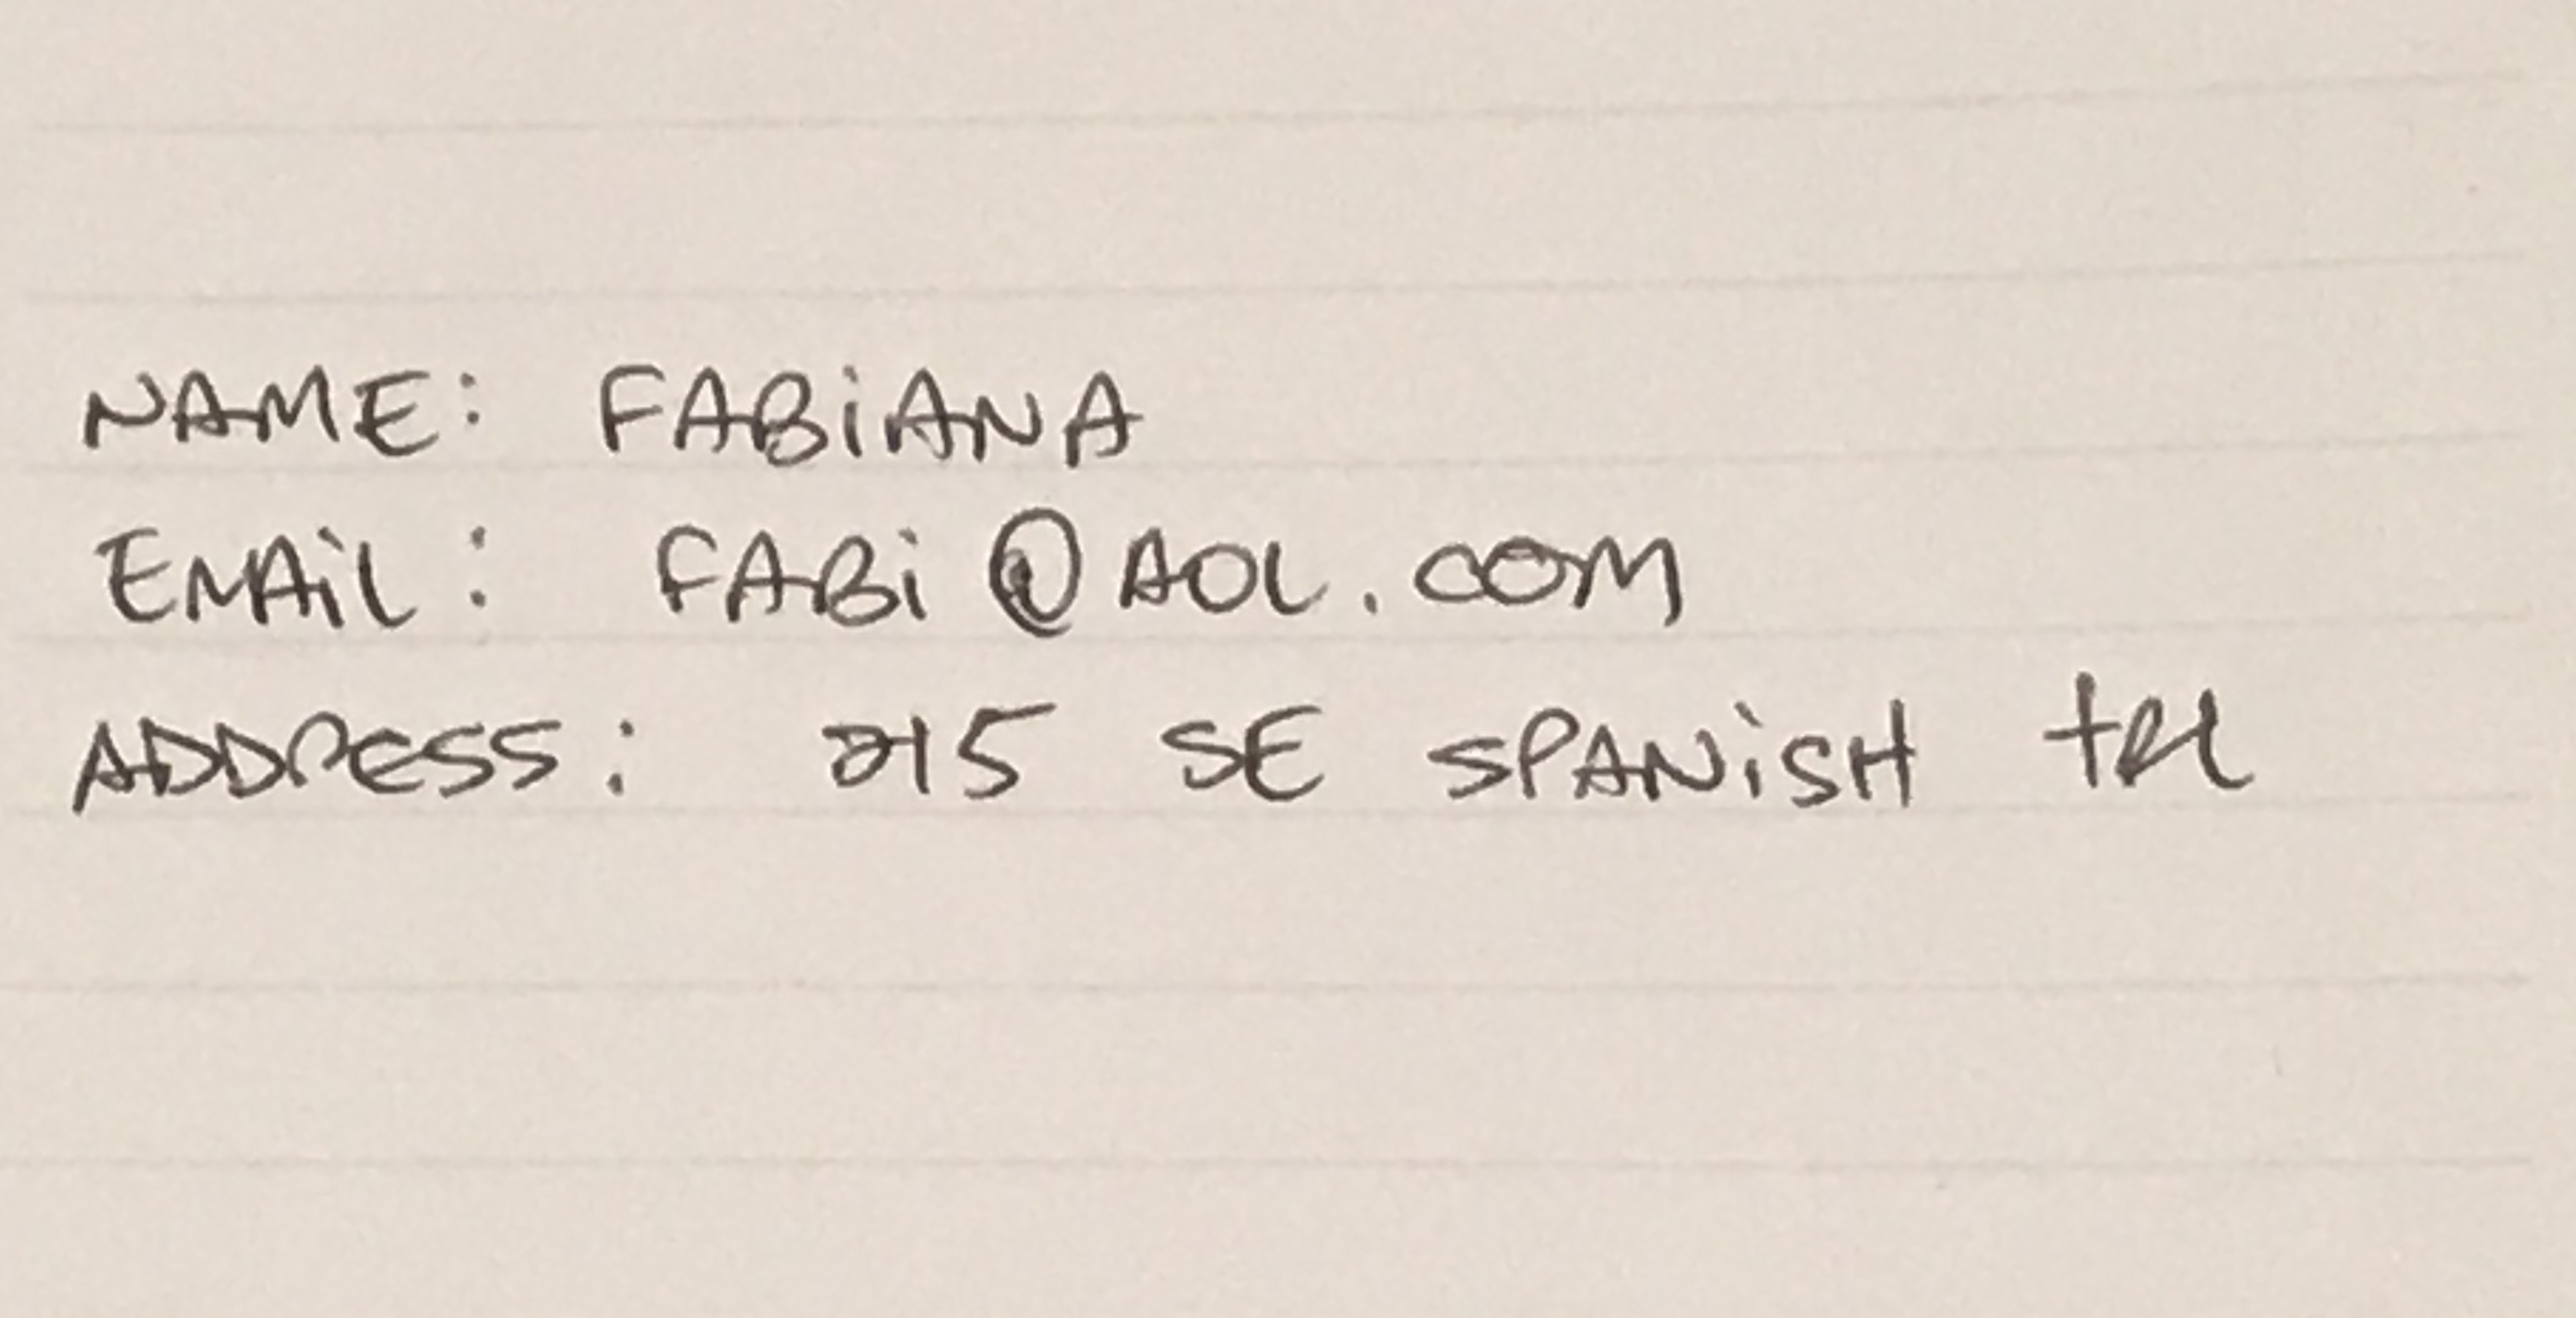 NAME: FABiANA
EMAiL: FABi@AOL.COM
ADDRESS: 215 SE SPANiSH